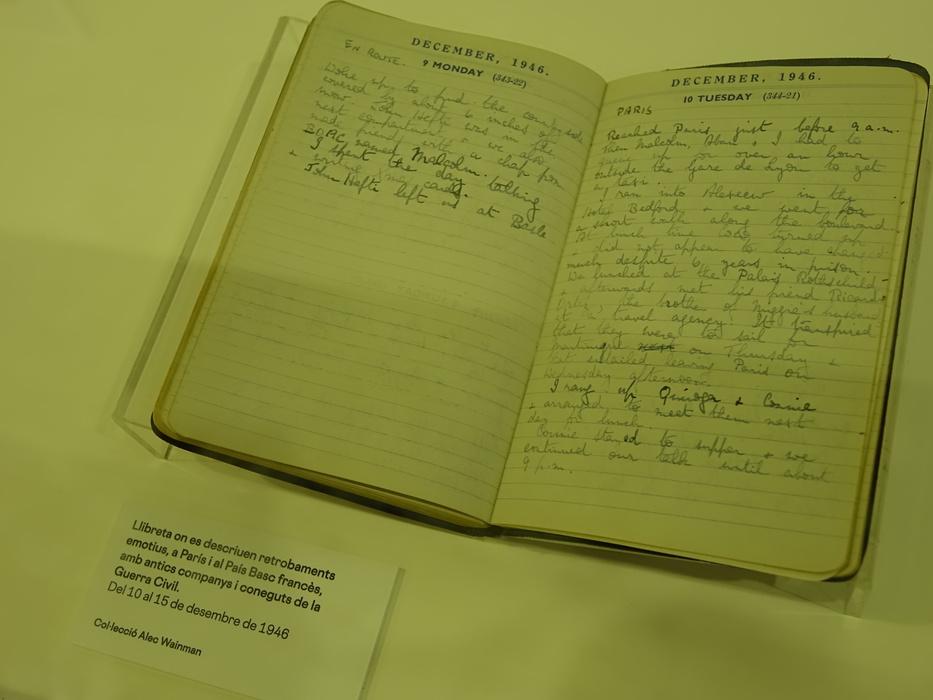 DECEMBER, 1946.
EN ROUTE. 9 MONDAY (343-22)
Woke up to find the countryside
covered by about 6 inches of
snow. John Hefti was in the
next compartment & we also
made friends with a chap from
BOAC named Malcolm.
I spent the day talking
& writing Xmas cards.
John Hefti left us at Basle
DECEMBER, 1946.
10 TUESDAY (344-21)
PARIS
Reached Paris just before 9 a.m.
Then Malcolm, & I had to
queue up for over an hour
outside the Gare de Lyon to get
a taxi.
I ran into in the
Hotel Bedford & we went for
a short walk along the boulevard.
At lunch time turned up
& did not appear to have changed
much despite 6 years in prison.
We lunched at the Palais Rothschild
& afterwards met his friend Ricardo
the brother of husband
at a travel agency. It transpired
that they were to sail for
next on Thursday &
entailed leaving Paris on
Wednesday afternoon.
I rang up Quiroga & Connie
& arranged to meet them next
day for lunch.
Connie stayed to supper & we
continued our talk until about
9 p.m.
Llibreta on es descriuen retrobaments
emotius, a París i al País Basc francès,
amb antics companys i coneguts de la
Guerra Civil.
Del 10 al 15 de desembre de 1946
Col·lecció Alec Wainman